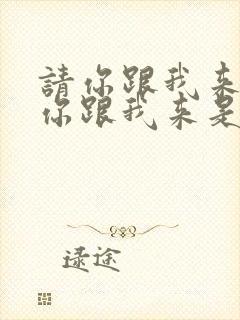 請你跟我来
你跟我来是
逯途